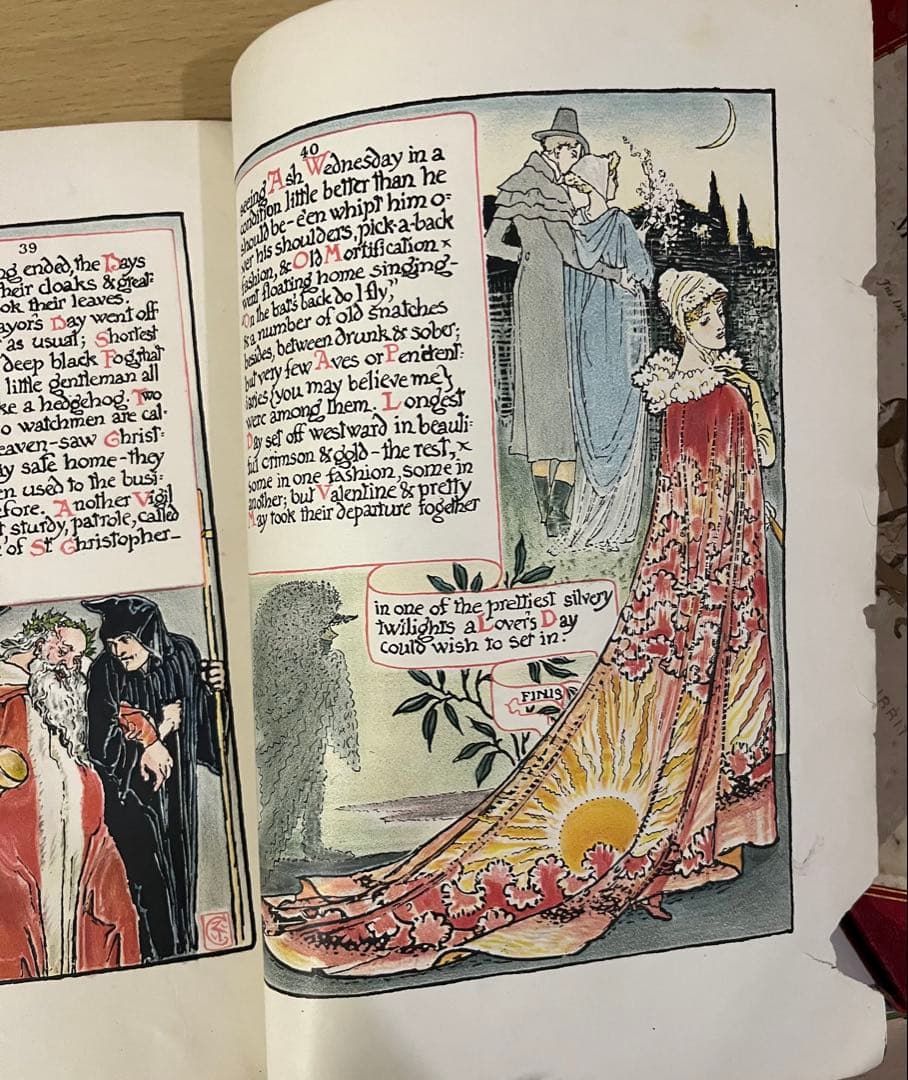 39
ng ended, the Days
heir cloaks & great-
ok their leaves.
ayor's Day went off
as usual; Shortest
deep black Fog, that
little gentleman all
se a hedgehog. Two
o watchmen are cal-
eaven-saw Christ-
ly safe home-they
en used to the busi-
efore. Another Vigil
t, sturdy, patrole, called
of St Christopher-
40
seeing Ash Wednesday in a
condition little better than he
should be-e'en whipt him o-
ver his shoulders, pick-a-back
fashion, & Old Mortification
went floating home singing-
"On the bat's back do I fly,"
& a number of old snatches
besides, between drunk & sober;
but very few Aves or Peniten-
tiaries {you may believe me}
were among them. Longest
Day set off westward in beauti-
ful crimson & gold-the rest,
some in one fashion, some in
another; but Valentine & pretty
May took their departure together
in one of the prettiest silvery
twilights a Lover's Day
could wish to set in.
FINIS